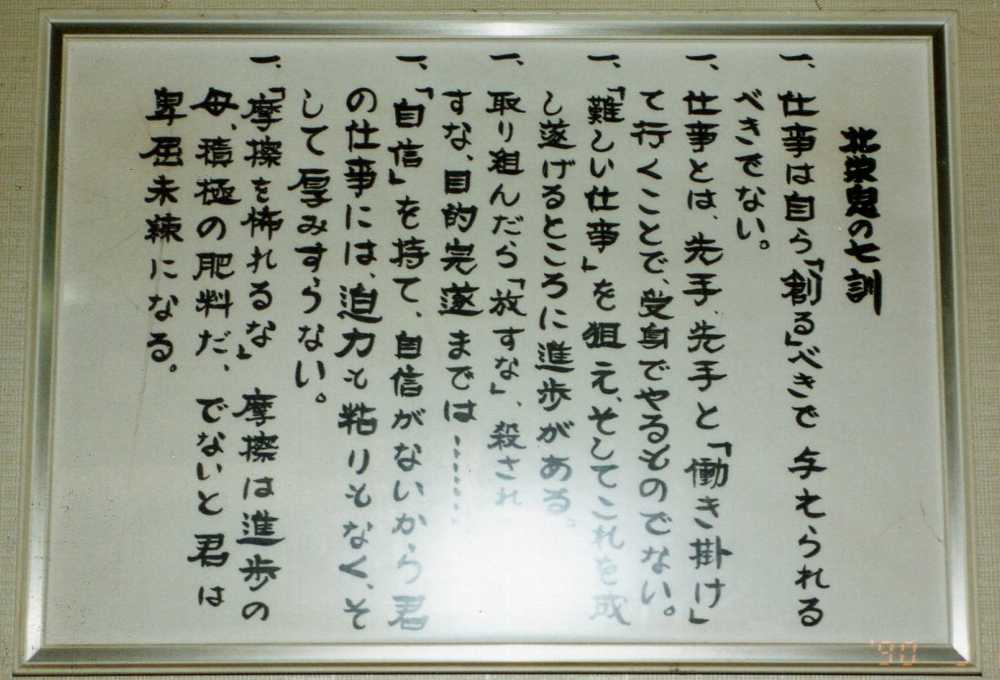 北栄鬼の七訓
一、仕事は自ら「創る」べきで 与えられる
べきでない。
一、仕事とは、先手、先手と「働き掛け」
て行くことで、受身でやるものでない。
一、「難しい仕事」を狙え、そしてこれを成
し遂げるところに進歩がある。
一、取り組んだら「放すな」、殺され
すな、目的完遂までは………
一、「自信」を持て、自信がないから君
の仕事には、迫力も粘りもなく、そ
して厚みすらない。
一、「摩擦を怖れるな」 摩擦は進歩の
母、積極の肥料だ、でないと君は
卑屈未練になる。
'90